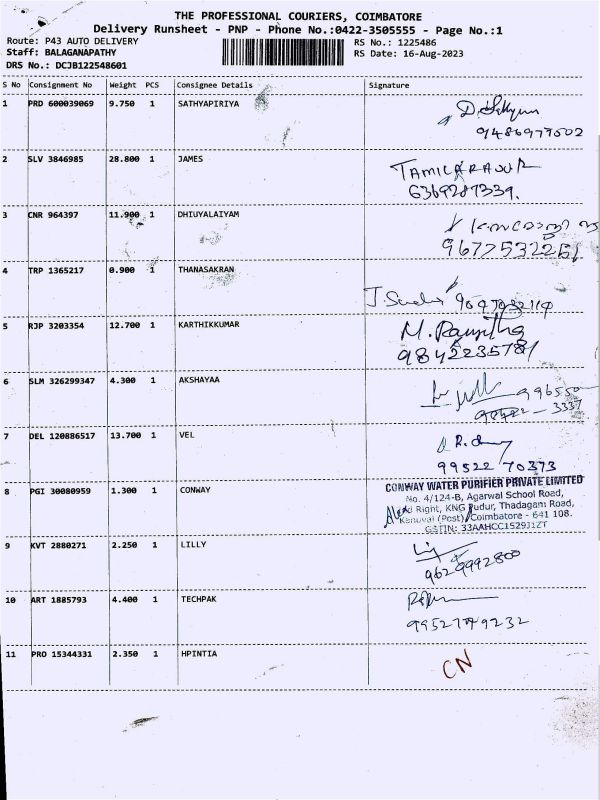 THE PROFESSIONAL COURIERS, COIMBATORE
Delivery Runsheet - PNP - Phone No.:0422-3505555 - Page No.:1
Route: P43 AUTO DELIVERY RS No.: 1225486
Staff: BALAGANAPATHY RS Date: 16-Aug-2023
DRS No.: DCJB122548601
S No Consignment No Weight PCS Consignee Details Signature
1 PRD 600039069 9.750 1 SATHYAPIRIYA
9486977502
2 SLV 3846985 28.800 1 JAMES
6369287339.
3 CNR 964397 11.900 1 DHIUYALAIYAM
9677532251
4 TRP 1365217 0.900 1 THANASAKRAN
5 RJP 3203354 12.700 1 KARTHIKKUMAR
9842235781
6 SLM 326299347 4.300 1 AKSHAYAA
7 DEL 120886517 13.700 1 VEL
99522 70373
8 PGI 30080959 1.300 1 CONWAY
CONWAY WATER PURIFIER PRIVATE LIMITED
No. 4/124-B, Agarwal School Road,
Right, KNG Pudur, Thadagam Road,
Kanuvai (Post) Coimbatore - 641 108.
GSTIN: 33AAHCC1529J1ZT
9 KVT 2880271 2.250 1 LILLY
9629992800
10 ART 1885793 4.400 1 TECHPAK
11 PRO 15344331 2.350 1 HPINTIA
CN